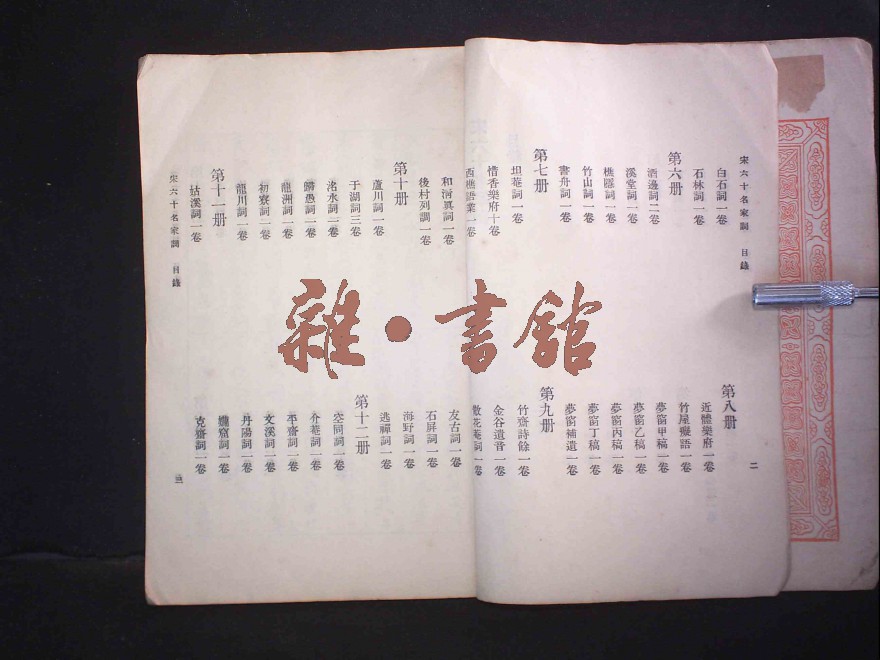 宋六十名家詞 目錄
二
白石詞一卷
石林詞一卷
第六册
酒邊詞二卷
溪堂詞一卷
樵隱詞一卷
竹山詞一卷
書舟詞一卷
第七册
坦菴詞一卷
惜香樂府十卷
西樵語業一卷
第八册
近體樂府一卷
竹屋癡語一卷
夢窗甲稿一卷
夢窗乙稿一卷
夢窗丙稿一卷
夢窗丁稿一卷
夢窗補遺一卷
第九册
竹齋詩餘一卷
金谷遺音一卷
散花菴詞一卷
和清真詞一卷
後村別調一卷
第十册
蘆川詞一卷
于湖詞三卷
洺水詞一卷
歸愚詞一卷
龍洲詞一卷
初寮詞一卷
龍川詞一卷
第十一册
姑溪詞一卷
友古詞一卷
石屏詞一卷
海野詞一卷
逃禪詞一卷
第十二册
空同詞一卷
介菴詞一卷
平齋詞一卷
文溪詞一卷
丹陽詞一卷
孏窟詞一卷
克齋詞一卷
宋六十名家詞 目錄
三
雜·書館